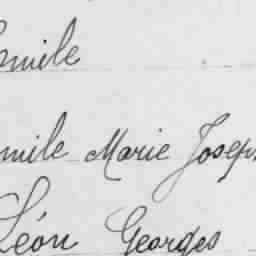 Emile
Emile Marie Joseph
Léon Georges